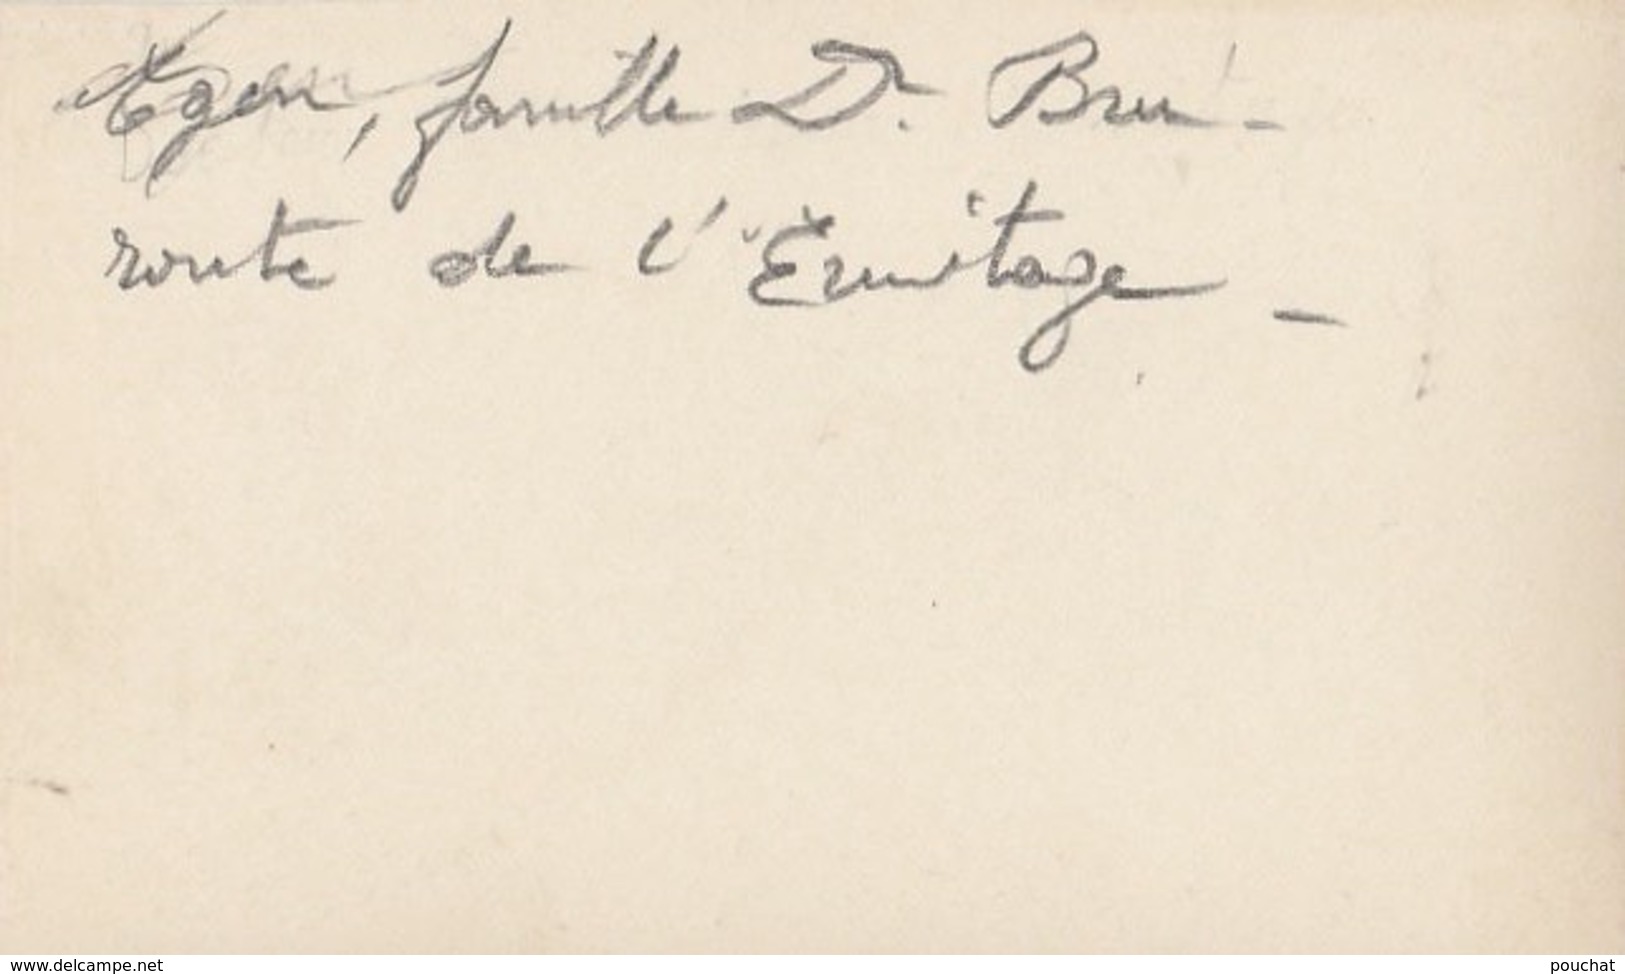 Agen, famille Dr. Bru -
route de l'Ermitage -
www.delcampe.net
pouchat